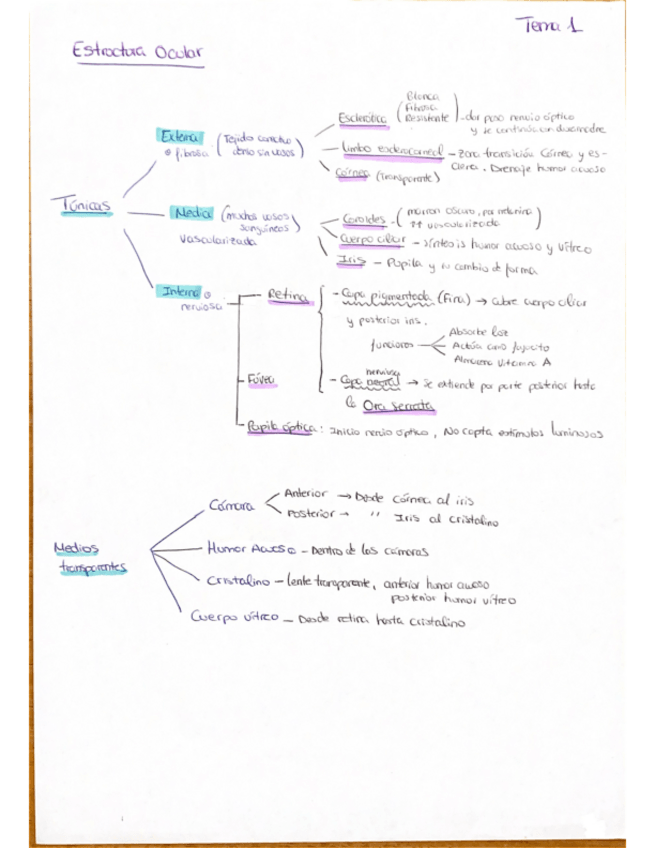 Tema 1
Estructura Ocular
Túnicas
Externa o fibrosa (Tejido conectivo denso sin vasos)
Esclerótica (Blanca Fibrosa Resistente) - da paso nervio óptico
y se continúa con duramadre
Limbo esclerocorneal - Zona transición Córnea y es-
clera. Drenaje humor acuoso
Córnea (transparente)
Media (muchos vasos sanguíneos)
vascularizada
Coroides - (marrón oscuro, por melanina
↑↑ vascularizada)
Cuerpo ciliar - síntesis humor acuoso y vítreo
Iris - Pupila y su cambio de forma
Interna o
nerviosa
Retina
- Capa pigmentada (Fina) → cubre cuerpo ciliar
y posterior iris.
funciones
Absorbe luz
Actúa como fagocito
Almacena vitamina A
- Capa neural nerviosa → se extiende por parte posterior hasta
la Ora serrata
Fóvea
Papila óptica: Inicio nervio óptico, No capta estímulos luminosos
Medios
transparentes
Cámara
Anterior → Desde córnea al iris
Posterior → " Iris al cristalino
Humor Acuoso - Dentro de las cámaras
Cristalino - lente transparente, anterior humor acuoso
posterior humor vítreo
Cuerpo vítreo - Desde retina hasta cristalino